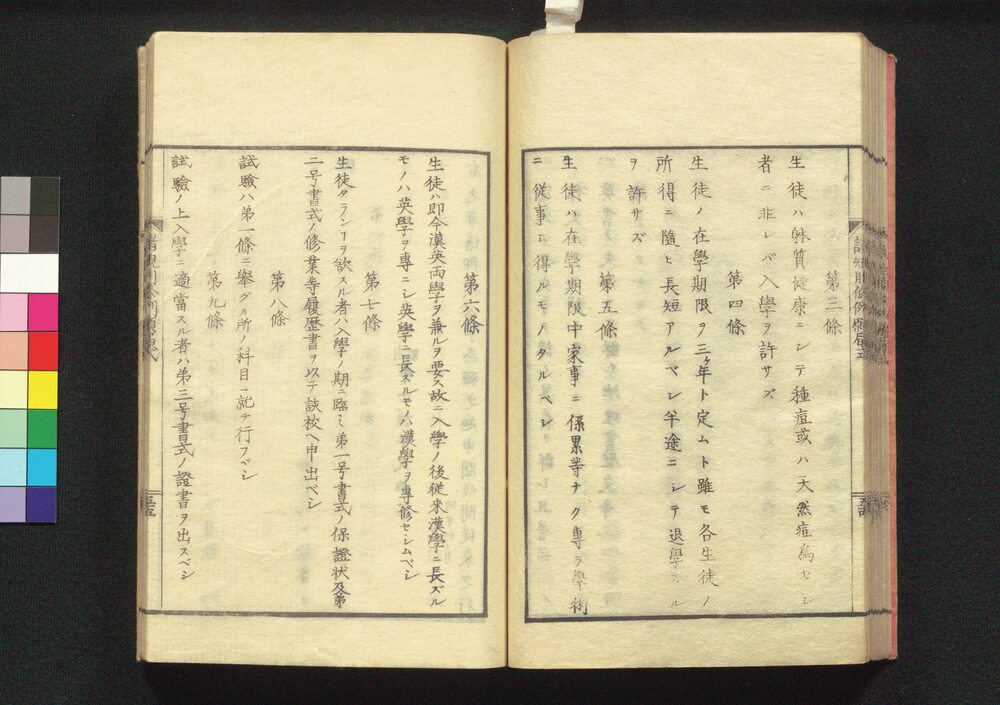 第三條
生徒ハ躰質健康ニシテ種痘或ハ天然痘為セシ
者ニ非レバ入學ヲ許サズ
第四條
生徒ノ在學期限ヲ三ケ年ト定ムト雖モ各生徒ノ
所得ニ隨ヒ長短アルベシ半途ニシテ退學スル
ヲ許サズ
第五條
生徒ハ在學期限中家事ニ係累等ナク專ラ學術
ニ従事シ得ルモノタルベシ
第六條
生徒ハ即今漢英両學ヲ兼ルヲ要ス故ニ入學ノ後従来漢學ニ長ズル
モノハ英學ヲ專ニシ英學ニ長ズルモノハ漢學ヲ專修セシムベシ
第七條
生徒タランヿヲ欲スル者ハ入學ノ期ニ臨ミ第一号書式ノ保證状及第
二号書式ノ修業等履歴書ヲ以テ該校ヘ申出ベシ
第八條
試驗ハ第一條ニ擧グル所ノ科目ニ就テ行フベシ
第九條
試驗ノ上入學ニ適當スル者ハ第三号書式ノ證書ヲ出スベシ